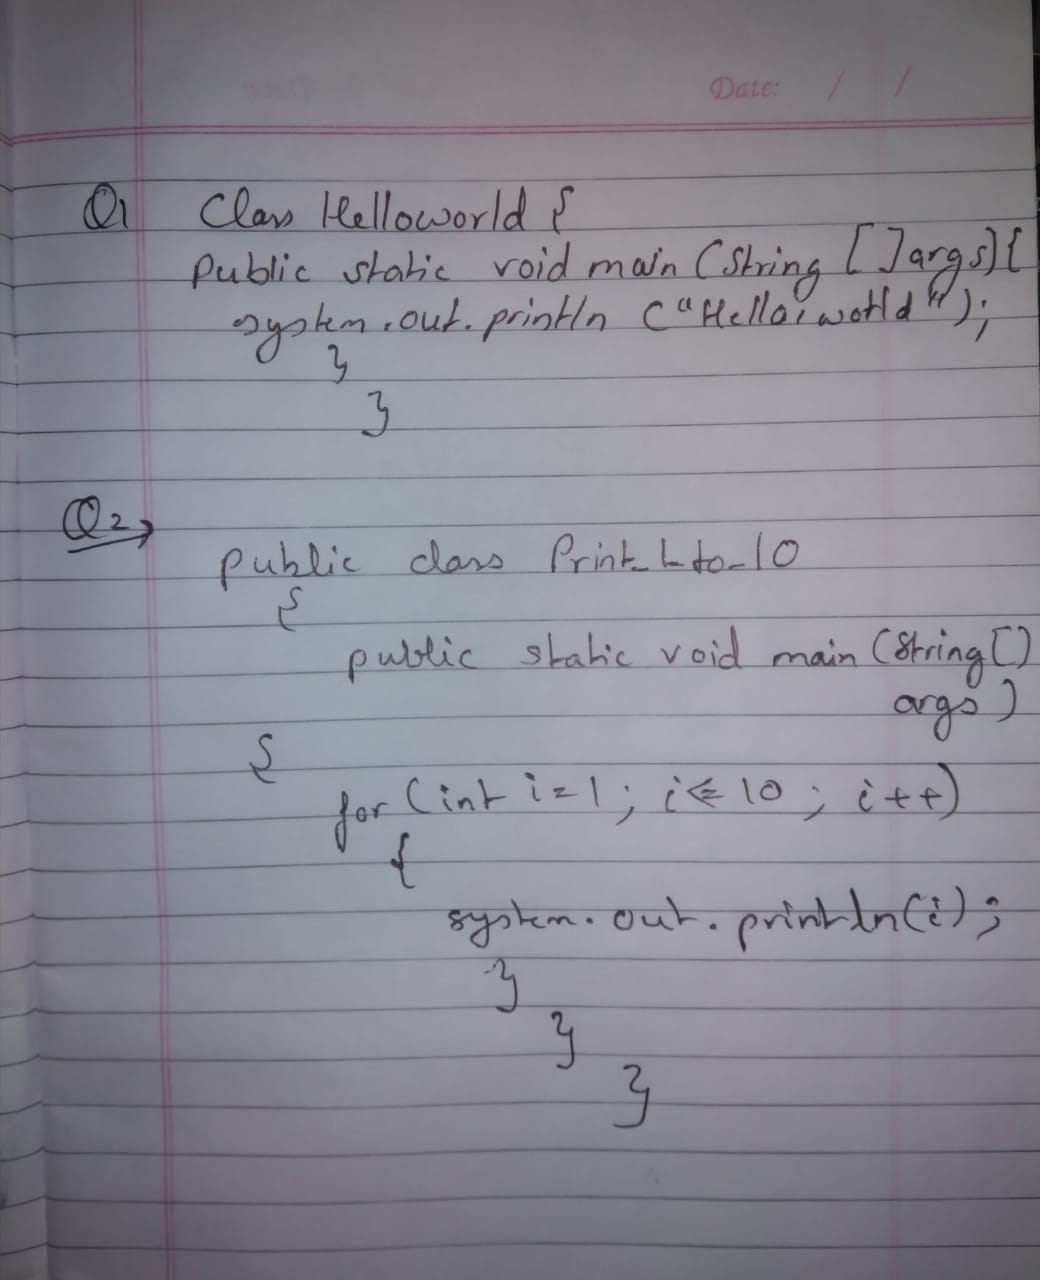 Date: / /
Q1 Class Helloworld {
Public static void main (String [ ] args) {
system.out.println ("Hello, world");
}
}
Q2→
public class Print_1_to_10
{
public static void main (String[]
args)
{
for (int i=1; i<=10; i++)
{
system.out.println(i);
}
}
}